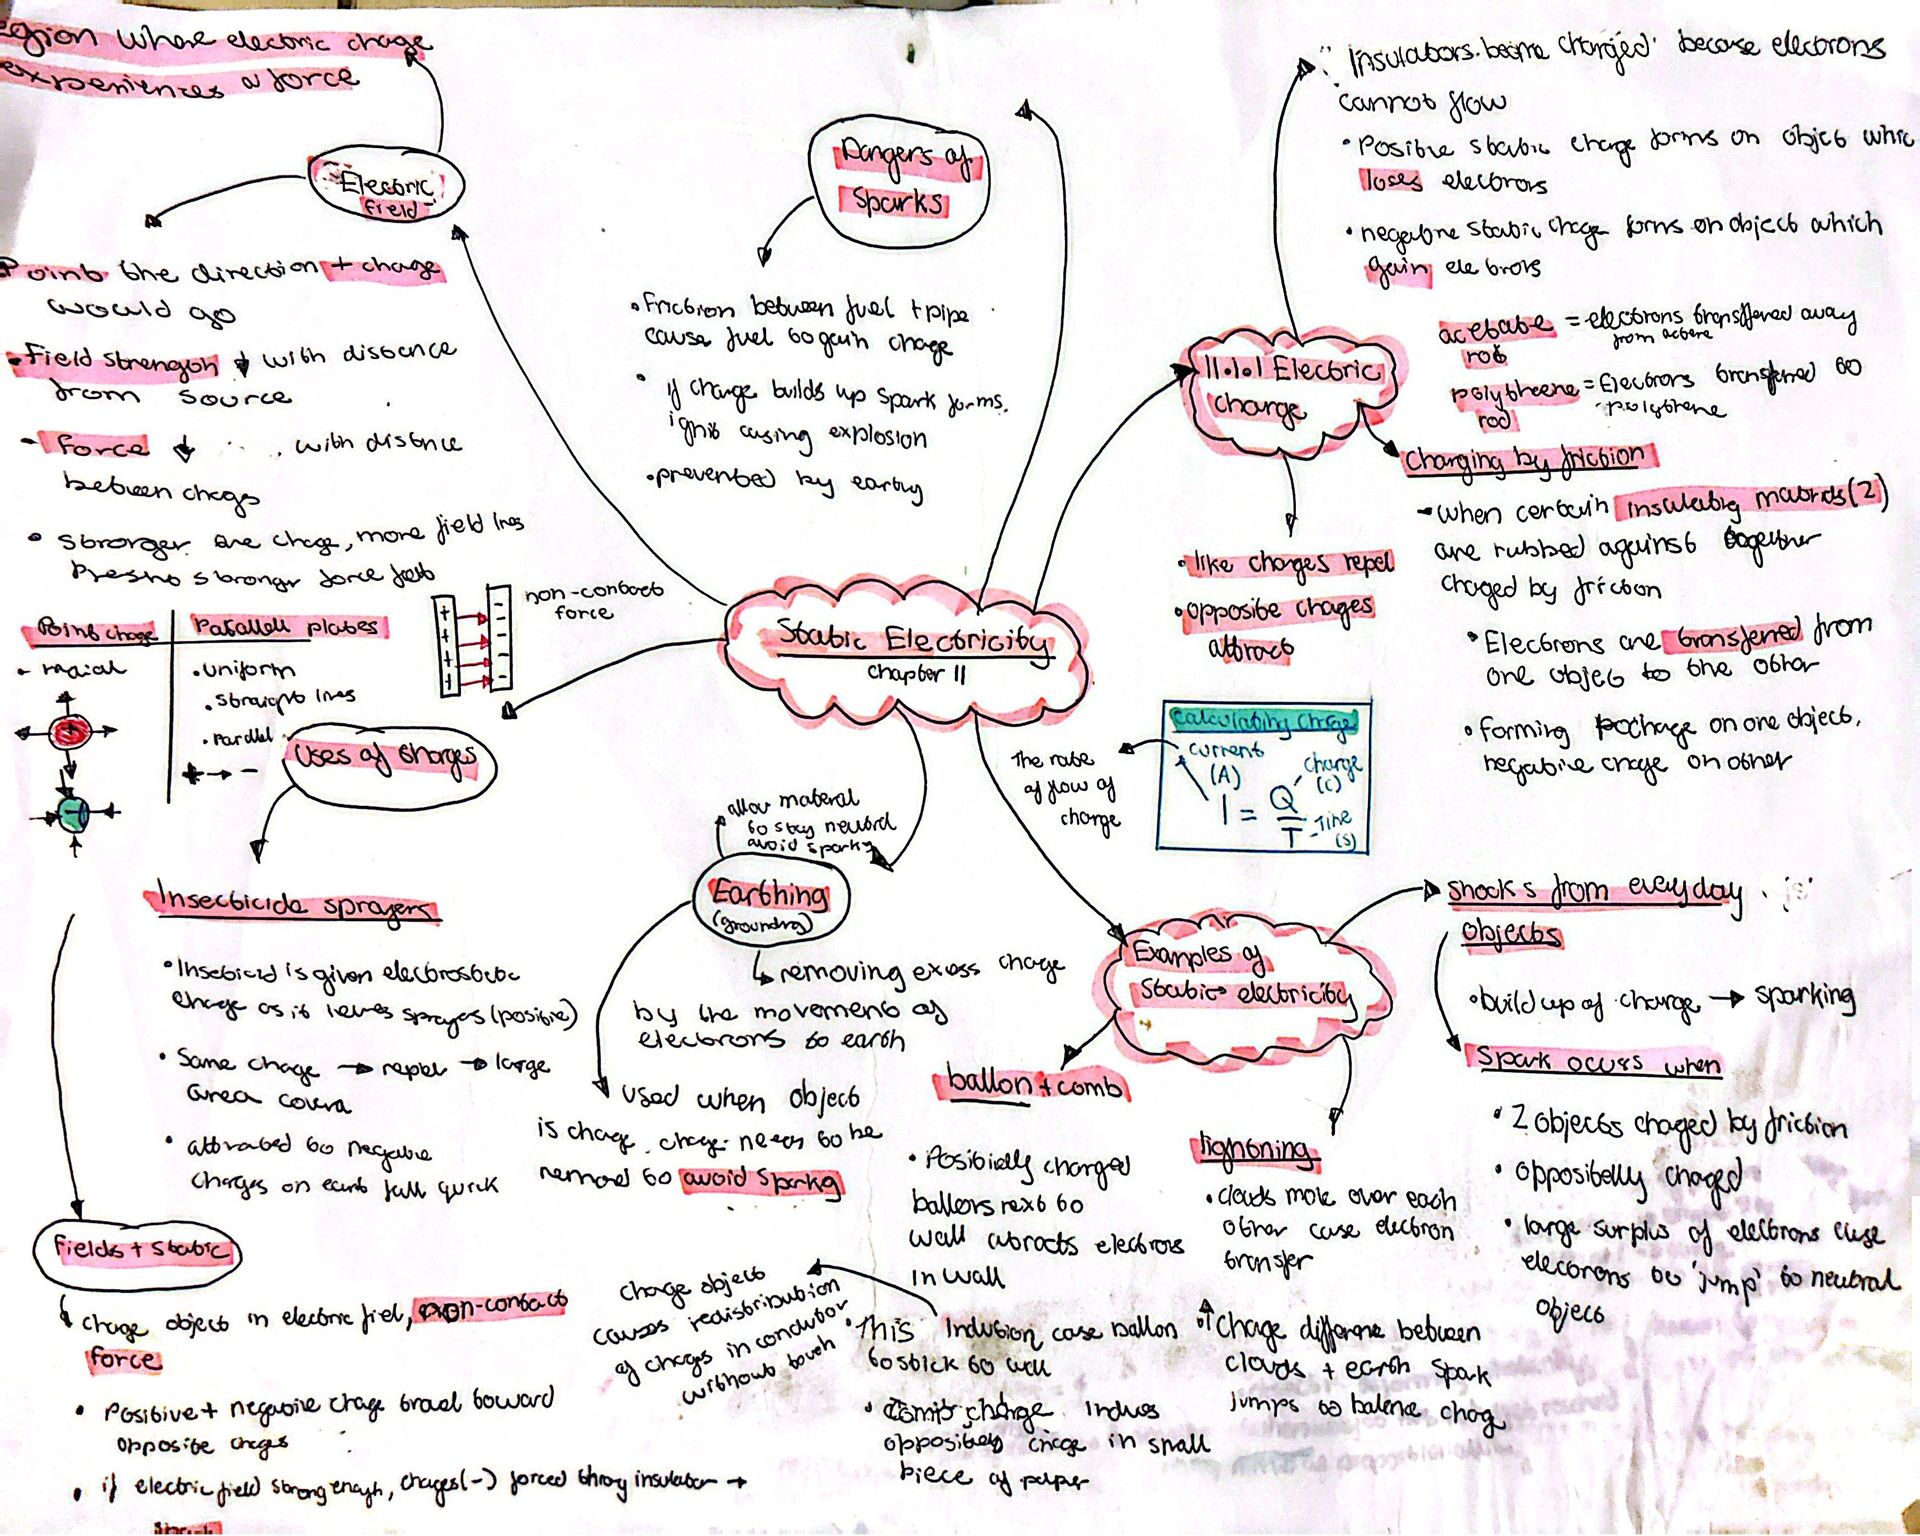 region where electric charge
experiences a force
Electric
field
Point the direction + charge
would go
Field strength ↓ with distance
from source
- Force ↓ with distance
between charges
• Stronger the charge, more field lines
stronger force felt
Point charge
Parallell plates
• uniform
• straight lines
• Parallel
+ → -
+
-
+ + + +
- - - -
non-contact
force
Dangers of
Sparks
• Friction between fuel + pipe
cause fuel to gain charge
• if charge builds up spark forms.
ignit causing explosion
• prevented by earthing
Static Electricity
chapter 11
11.1.1 Electric
charge
Insulators become charged because electrons
cannot flow
• Positive static charge forms on object which
loses electrons
• negative static charge forms on object which
gain electrons
acetate = electrons transferred away
rod
polytheene = Electrons transferred to
polythene
rod
Charging by friction
- when certain insulating materials (2)
are rubbed against together
charged by friction
• Electrons are transferred from
one object to the other
• forming charge on one object,
negative charge on other
• like charges repel
• opposite charges
attract
Calculating charge
current
(A)
charge
(C)
I = Q / T
Time
(s)
The rate
of flow of
charge
Uses of charges
Insecticide sprayers
• Insecticid is given electrostatic
charge as it leaves sprayers (positive)
• Same charge → repel → large
area
• attracted to negative
charges on earth fall quick
allow material
to stay neutral
avoid sparks
Earthing
(grounding)
removing excess charge
by the movement of
electrons to earth
used when object
is charge. charge needs to be
removed to avoid sparking
Examples of
Static electricity
Shocks from everyday
objects
• build up of charge → sparking
Spark occurs when
• 2 objects charged by friction
• oppositelly charged
• large surplus of electrons cause
electrons to 'jump' to neutral
object
ballon + comb
• Positively charged
ballons next to
wall attracts electrons
in wall
• This induction case ballon
to stick to wall
• Comb charge induces
oppositely charge in small
piece of paper
charge object
causes redistribution
of charges in conductor
without touch
lightning
• clouds move over each
other case electron
transfer
• Charge difference between
clouds + earth spark
jumps to balance charge
Fields + static
charge object in electric field, non-contact
force
• Positive + negative charge travel toward
opposite charges
• if electric field strong enough, charges (-) forced throug insulator →